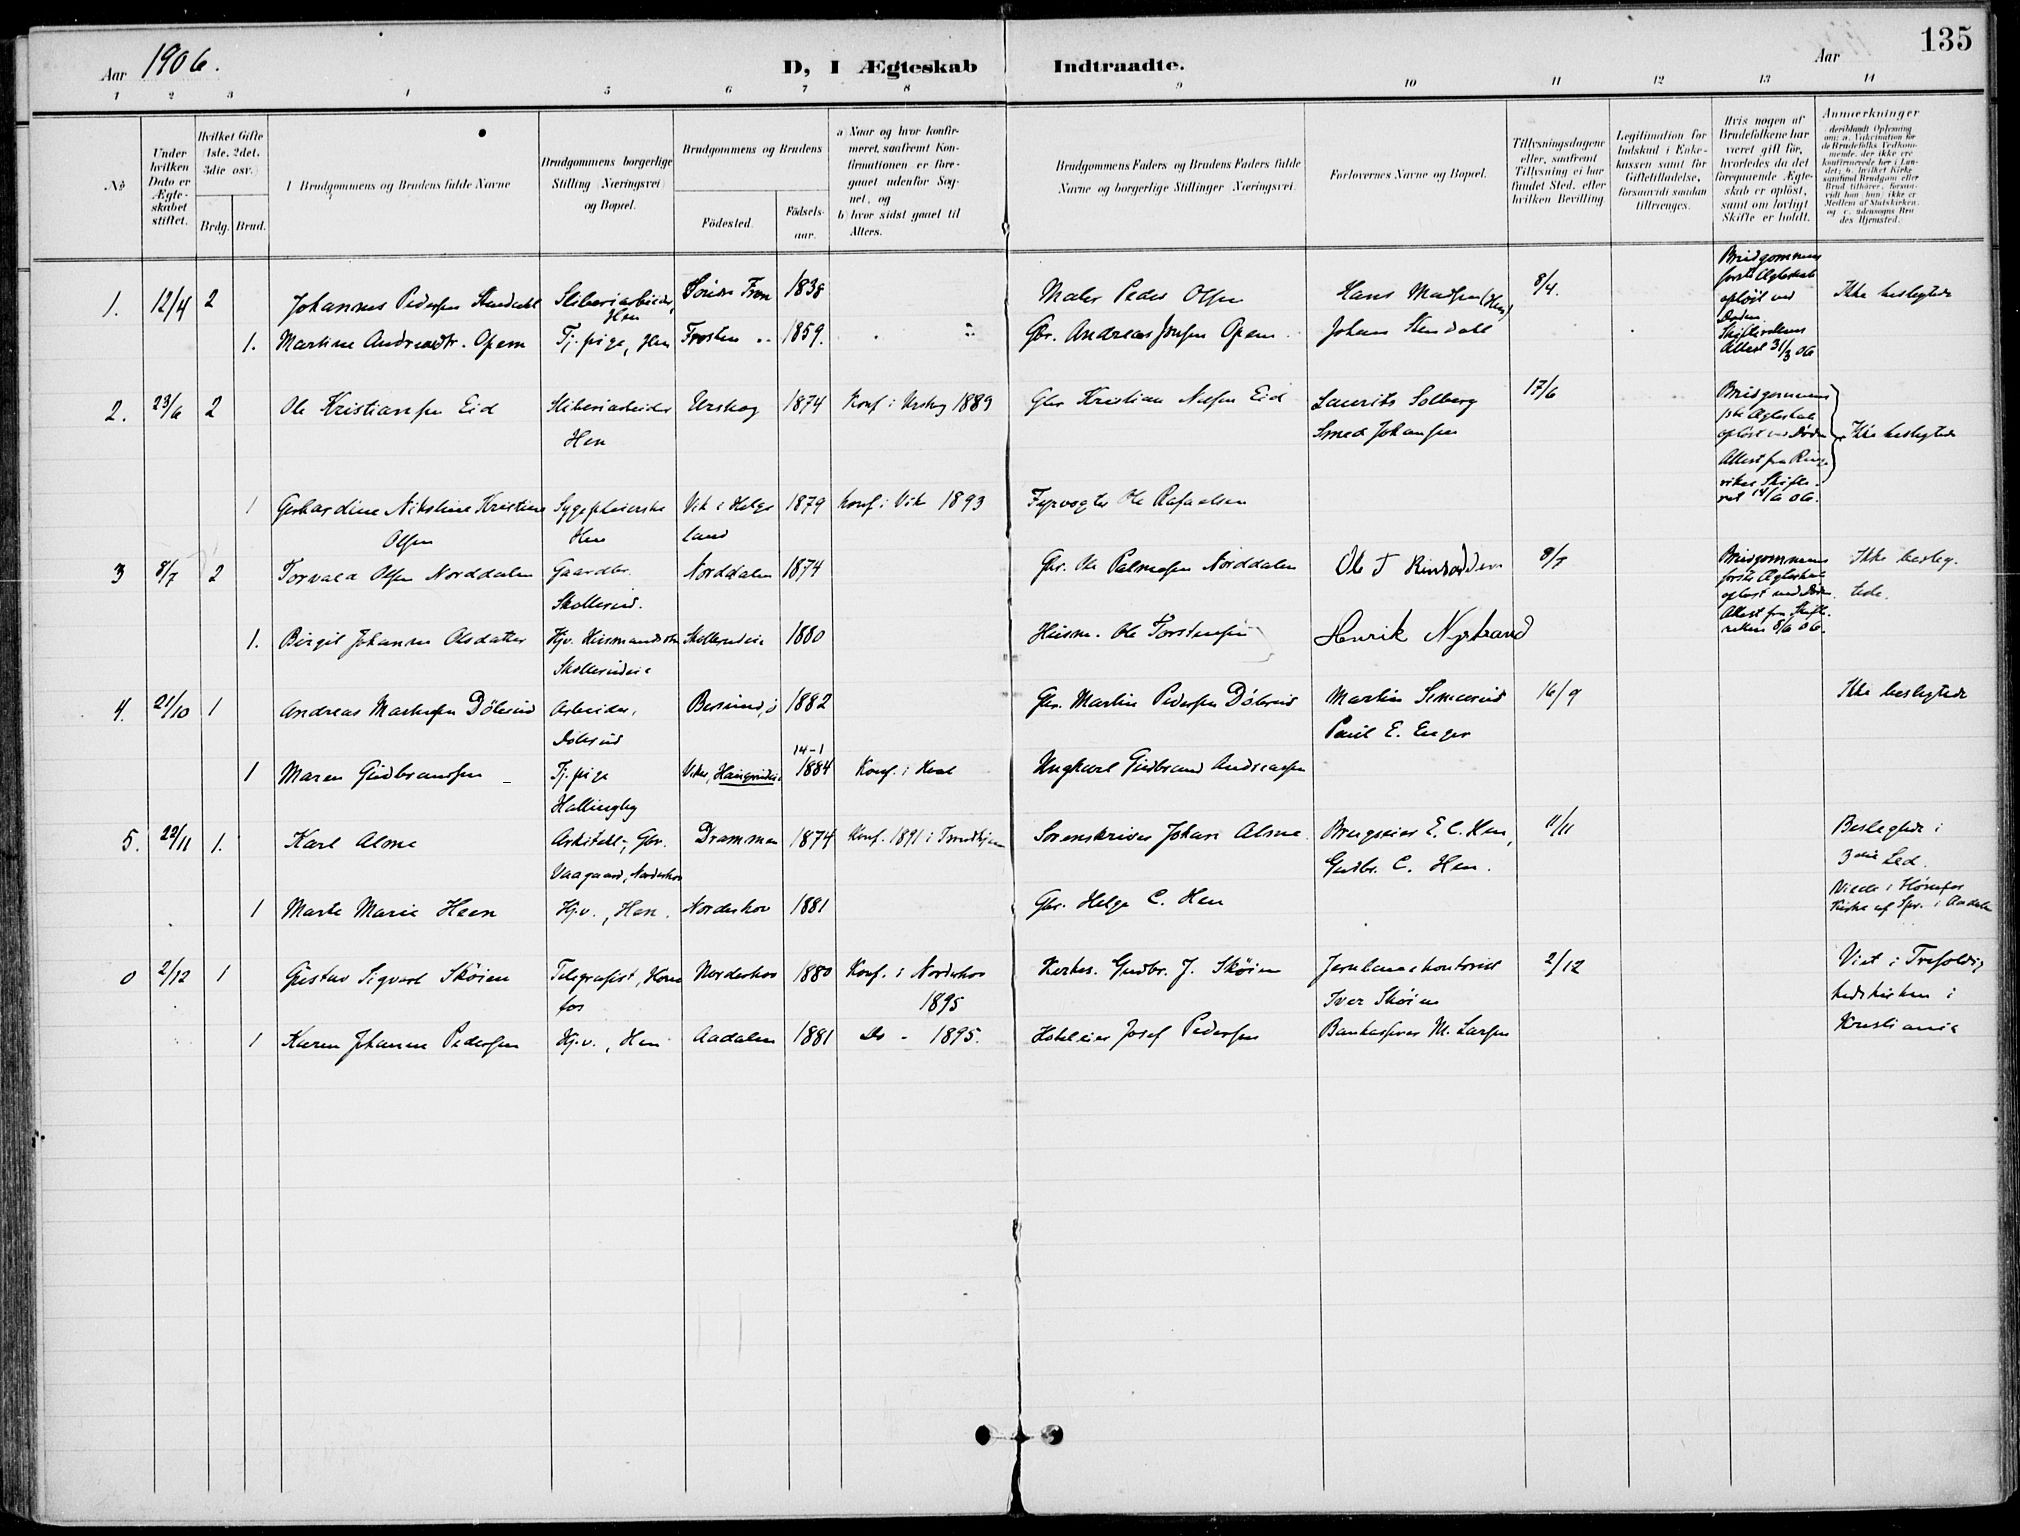 135
Aar 1906.
D, I Ægteskab Indtraadte.
Aar
1 2 3 4 5 6 7 8 9 10 11 12 13 14
No
Under hvilken Dato er Ægteskabet stiftet.
Hvilket Gifte (1ste, 2det, 3die osv.)
Brdg. Brud.
Brudgommens og Brudens fulde Navne
Brudgommens borgerlige Stilling (Næringsvei) og Bopæl.
Brudgommens og Brudens
Födested.
Födselsaar.
a) Naar og hvor konfirmeret, saafremt Konfirmationen er foregaaet udenfor Sognet, og
b) hvor sidst gaaet til Alters.
Brudgommens Faders og Brudens Faders fulde Navne og borgerlige Stillinger (Næringsvei).
Forlovernes Navne og Bopæl.
Tillysningsdagene eller, saafremt Tillysning ei har fundet Sted, efter hvilken Bevilling.
Legitimation for Indskud i Enkekassen samt for Giftetilladelse, forsaavidt saadan tiltrænges.
Hvis nogen af Brudefolkene har været gift för, hvorledes da det foregaaende Ægteskab er oplöst, samt om lovligt Skifte er holdt.
Anmerkninger
1. 12/4 2 Johannes Pedersen Stendahl Sliberiarbeider, Hen Söndre Fron 1838 Maler Peder Olsen Hans Madsen (Hen) 8/4. Brudgommens første Ægteskab opløst ved Døden Attest 31/3 06 Ikke beslegtede
1. Martine Andreasdtr. Opem Tj. pige, Hen Frosten 1859. Gbr. Andreas Jonsen Opem Johan Stendahl
2. 23/6 2 Ole Kristiansen Eid Sliberiarbeider Hen Urskog 1874 Konf. i Urskog 1889 Gbr. Kristian Nilsen Eid Laurits Solberg 17/6 Brudgommens Ægteskab opløst ved Døden Ikke beslegtede
Smed Johansen
Attest fra Ringerikes Skifteret 14/6 06.
1 Gerhardine Nikoline Kristine Olsen Sygepleierske Hen Vik i Helgeland 1879 Konf. i Vik 1893 Fyrvogter Ole Rafaelsen
3 8/7 2 Torvald Olsen Norddalen Gaardbr. Skollerud. Norddalen 1874 Gbr. Ole Palmesen Norddalen 8/7 Brudgommens første Ægteskab opløst ved Døden. Attest fra Skifteretten 8/6 06. Ikke beslegtede.
1. Birgit Johanne Olsdatter Hjv. Skollerudeie Skollerudeie 1880 Husm. Ole Torstensen Henrik Nystrand
4. 21/10 1 Andreas Martinsen Dölerud Arbeider, Dölerud 1882 Gbr. Martin Pedersen Dölerud Martin Semerud 16/9 Ikke beslegtede
Paul E. Enger
1 Maren Gudbransen Tj. pige Hallingby Viker, 14-1 1884 Konf. i Ungkarl Gudbrand Andreassen
5. 22/11 1. Karl Alme Arkitekt, Gbr. Vaagaard, Norderhov Drammen 1874 Konf. 1891 i Trondhjem Sorenskriver Johan Alme Brugseier E. C. Hen, 11/11 Beslegtede i 3die Led.
Gudbr. C. Hen.
1 Marte Marie Heen Hj.v., Hen. Norderhov 1881 Gbr. Helge C. Hen Viede i Hönefos Kirke af Spr. i Aadalen
0 2/12 1 Gustav Sigvart Skøien Telegrafist, Hönefos Norderhov 1880 Konf. i Norderhov 1895 Gudbr. J. Skøien Jernbanekontorist Iver Skøien 2/12 Viet i Trefoldighedskirken i Kristiania
1 Karen Johanne Pedersen Hj.v., Hen Aadalen 1881 Do - 1895. Hoteleier Josef Pedersen Bankkasserer M. Larsen